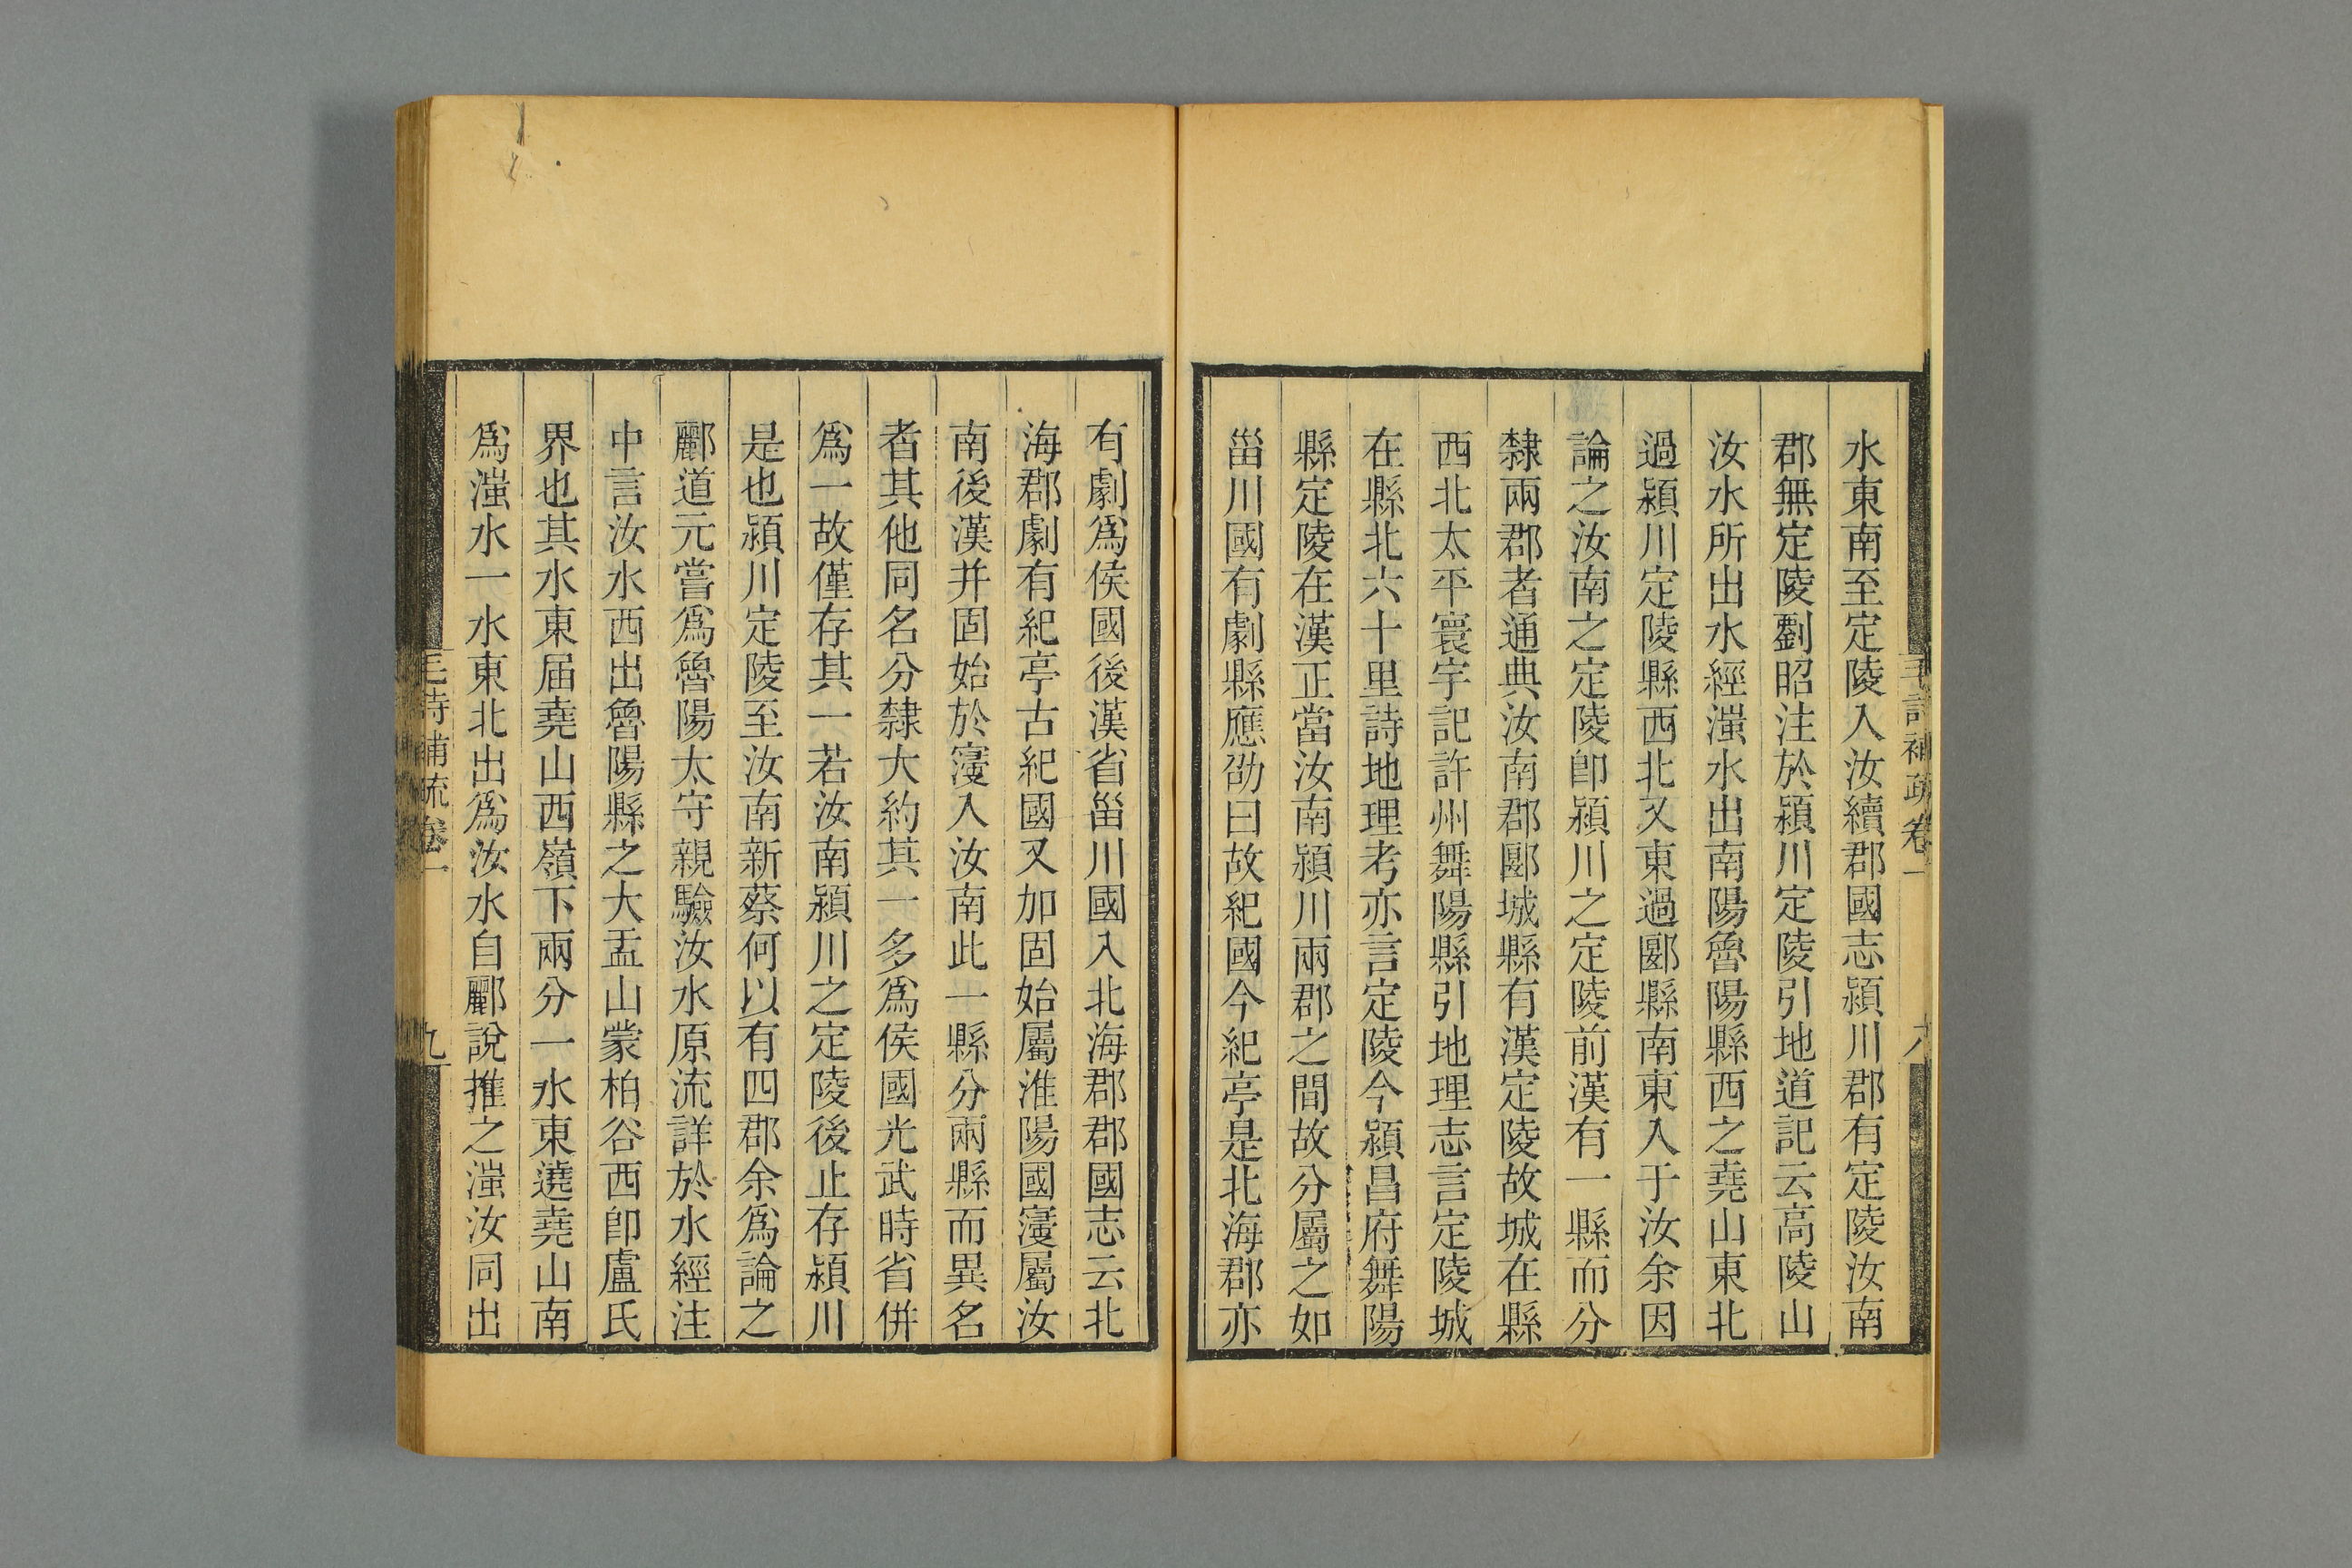 毛詩補疏卷一
八
水東南至定陵入汝續郡國志潁川郡有定陵汝南
郡無定陵劉昭注於潁川定陵引地道記云高陵山
汝水所出水經滍水出南陽魯陽縣西之堯山東北
過潁川定陵縣西北又東過郾縣南東入于汝余因
論之汝南之定陵卽潁川之定陵前漢有一縣而分
隸兩郡者通典汝南郡郾城縣有漢定陵故城在縣
西北太平寰宇記許州舞陽縣引地理志言定陵城
在縣北六十里詩地理考亦言定陵今潁昌府舞陽
縣定陵在漢正當汝南潁川兩郡之間故分屬之如
甾川國有劇縣應劭曰故紀國今紀亭是北海郡亦
有劇爲侯國後漢省甾川國入北海郡郡國志云北
海郡劇有紀亭古紀國又加固始屬淮陽國寑屬汝
南後漢并固始於寑入汝南此一縣分兩縣而異名
者其他同名分隸大約其一多爲侯國光武時省併
爲一故僅存其一若汝南潁川之定陵後止存潁川
是也潁川定陵至汝南新蔡何以有四郡余爲論之
酈道元嘗爲魯陽太守親驗汝水原流詳於水經注
中言汝水西出魯陽縣之大盂山蒙柏谷西卽盧氏
界也其水東屆堯山西嶺下兩分一水東遶堯山南
爲滍水一水東北出爲汝水自酈說推之滍汝同出
毛詩補疏卷一
九